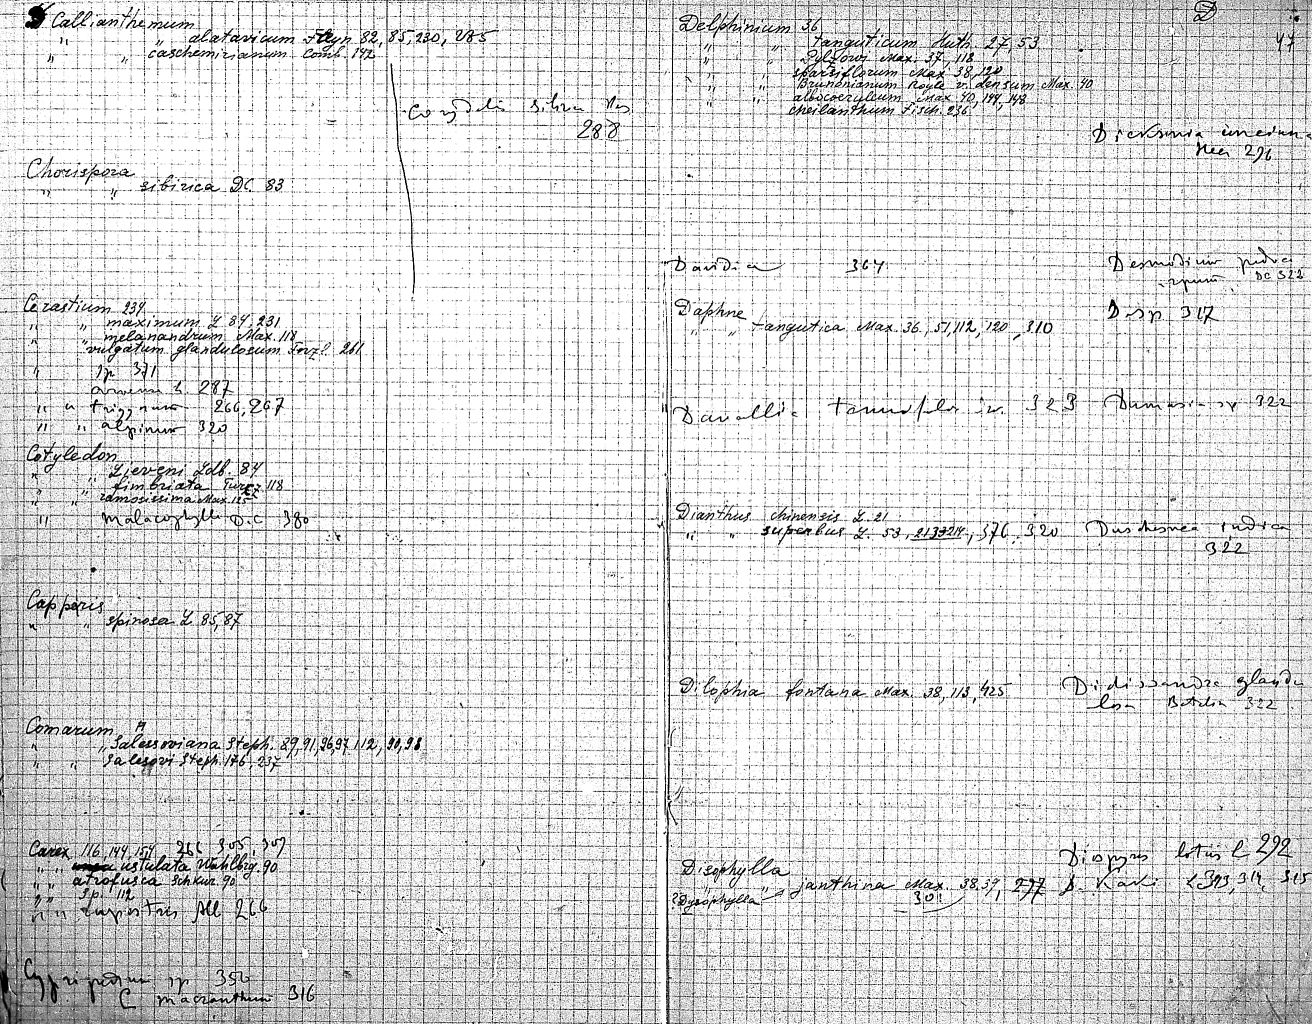 Callianthemum
" " alatavicum Freyn 82, 85, 230, 285
" " caschemirianum Comb. 142
Corydalis
288
Chorispora
" " sibirica DC 83
Cerastium 234
" " maximum L 84, 231
" " melanandrum Max. 118
" vulgatum glandulosum 261
" sp 371
arvense L. 287
" " trigynum 266, 267
" " alpinum 320
Cotyledon
" " Lieveni Ldb. 84
" " fimbriata Turcz. 118
" " ramosissima Max. 125
" malacophylla D.C 380
Capparis
" " spinosa L 85, 87
Comarum
" " Salessowiana Steph. 89, 91, 96, 97, 112, 90, 98
" " Salesovi Steph. 176, 237
Carex 116, 144, 154, 266, 305, 307
" " ustulata Wahlbrg. 90
" " atrofusca Schkur. 90
" " Sp. 112
" " rupestris All 266
Cypripedium sp 356
C macranthum 316
D
47
Delphinium 36
" " tanguticum Huth. 27, 53
" " Pylzowi Max. 37, 118
" " sparsiflorum Max 38, 120
" " Brunonianum Royle v. densum Max. 40
" " albocoeruleum Max 40, 144, 148
cheilanthum Fisch. 236
Dicksonia
Heer 296
Davidia 364
Desmodium
DC 322
Daphne
" " tangutica Max 36, 51, 112, 120, 310
D. sp 317
Davallia tenuifolia sw. 323
Dumasia sp 322
Dianthus chinensis L. 21
" " superbus L. 53, 213-214, 376, 320
Duchesnea indica
322
Dilophia fontana Max. 38, 113, 425
Didissandra glandu
losa 322
Diospyros lotus L 292
Disophylla
" " janthina Max. 38, 39, 297
D. Kaki L 313, 314, 315
? Dysophylla
301